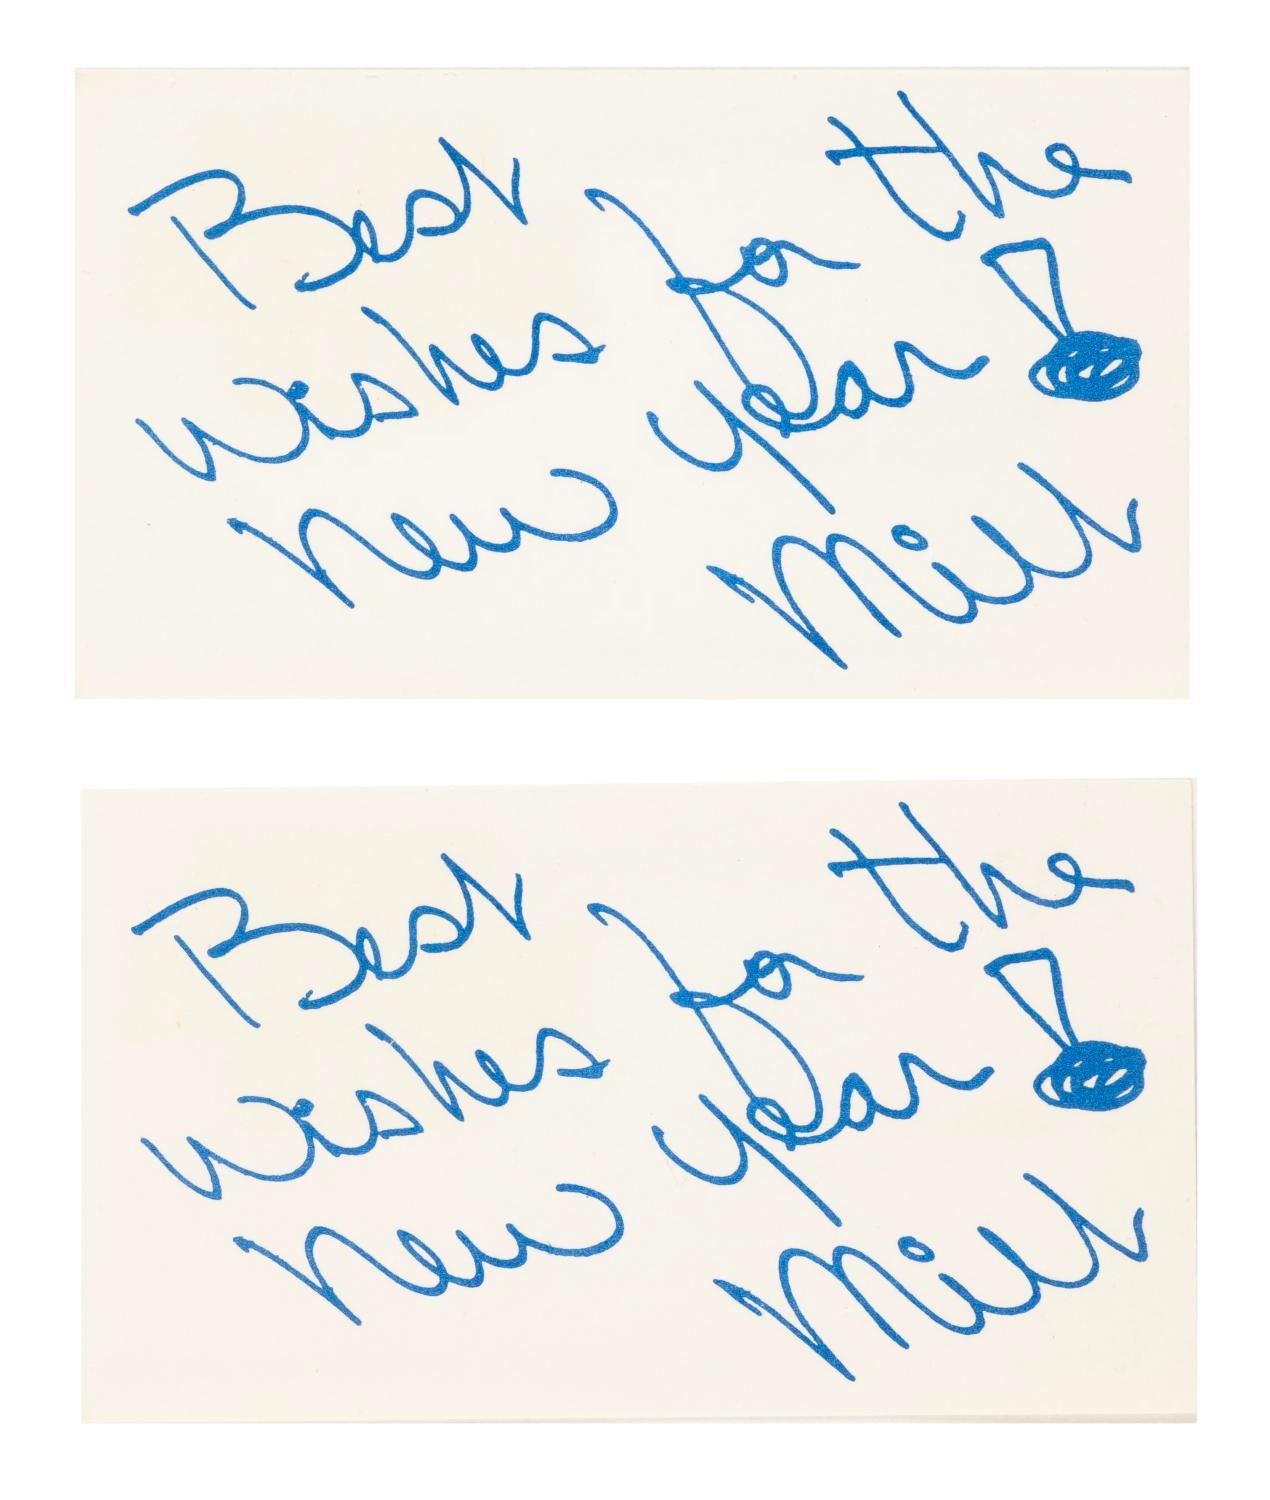 Best for the
Wishes year!
new Milt
Best for the
Wishes year!
new Milt